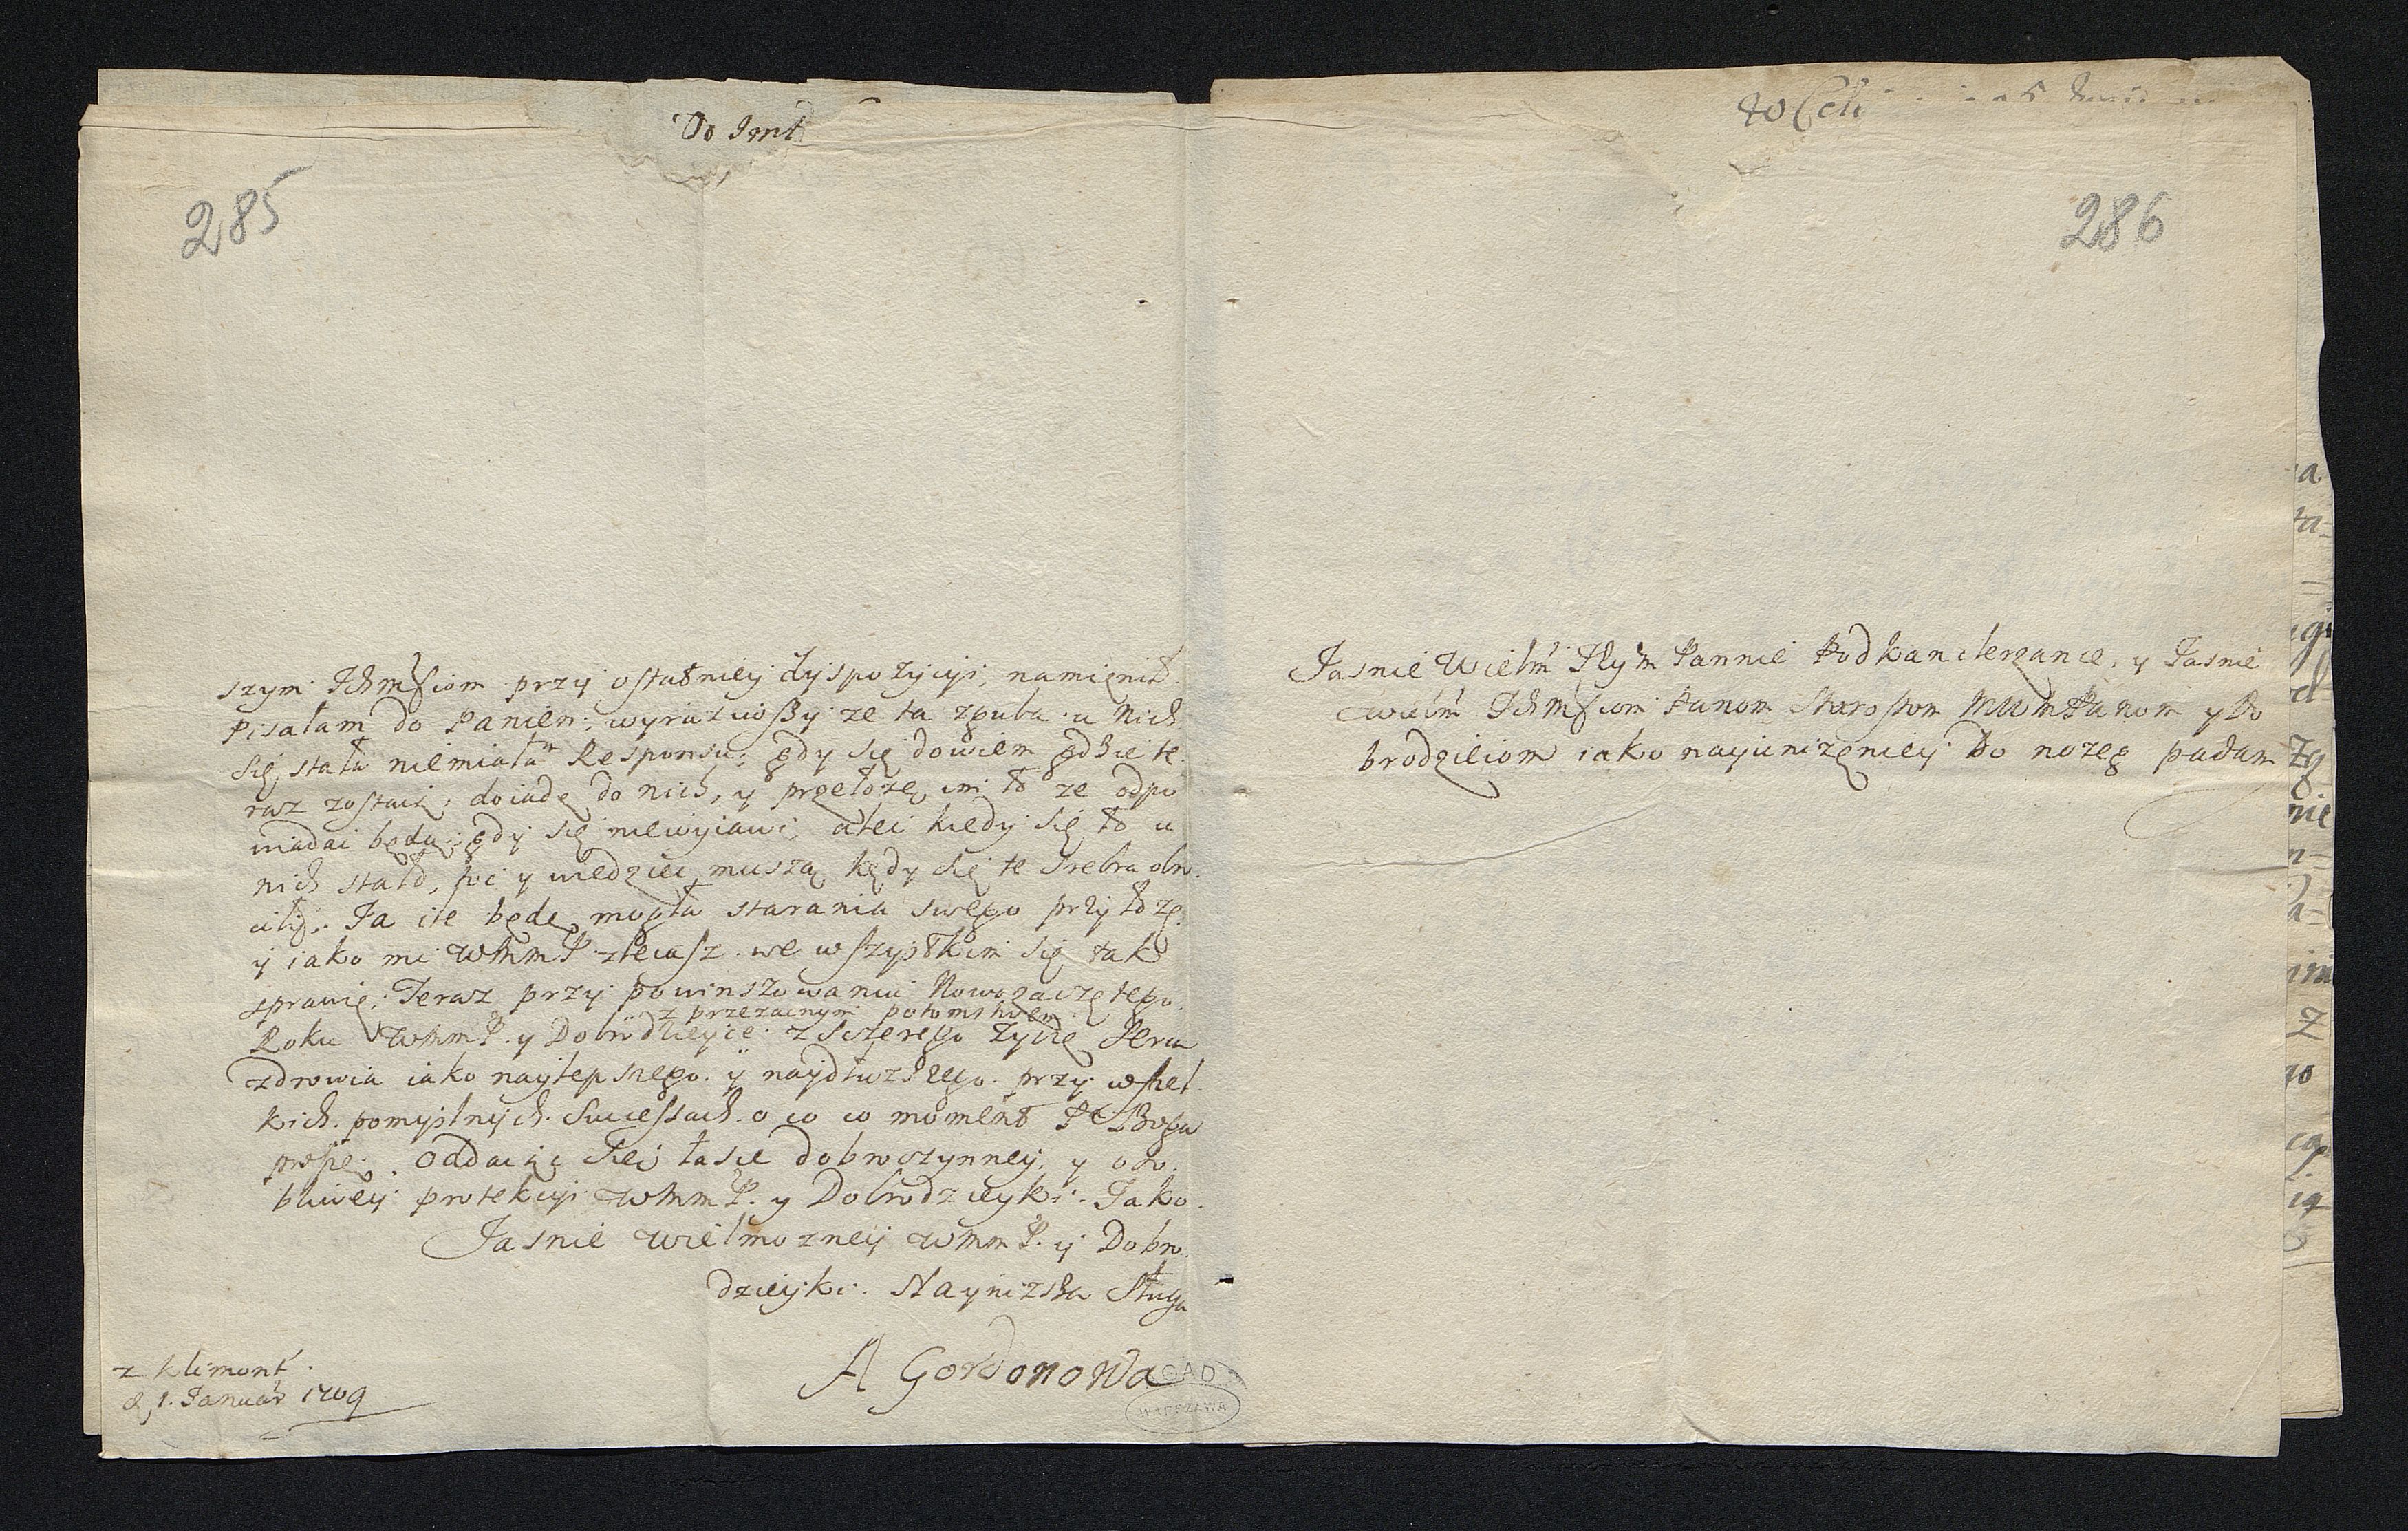 Do Jmć
285
szym Ichmściom przy ostatniey dyspozycyi, namięnił
Pisałam do Panien, wyraziwszy ze ta zguba u nich
się stała niemiałam Responsu, gdy się dowiem gdzie te
raz zostaią, doiadę do nich, y przełozę im to ze odpo
wiadac będą, gdy się niewyiawi, a lec kiedy się to u
nich stało, y wiedziec muszą kędy się te srebra obro
ciły. Ja ile będę mogła starania swego przyłozę
y iako mi WMMP zlecasz we wszystkim się tak
sprawię. Teraz przy powinszowaniu Nowozaczętego
z przezacnym potomstwem
Roku WMMP. y Dobrodzieyce z szczerego zyczę serca
zdrowia iako naylepszego y naydłuzszego przy wszel
kich pomyslnych Sucessach o co co moment Pa Boga
proszę. Oddaiąc się łasce dobroczynney, y oso
bliwey protekcyi WMMP. y Dobrodzieyki. Jako
Jasnie wielmozney WMMP. y Dobro
dzieyki. Naynizsza Sługa
A Gordonowa
z Klimont
d 1. Januar 1709
AGAD
WARSZAWA
286
Jasnie Wielm Pannie Podkanclerzance, y Jasnie
wielm Ichmściom Panom Starostom MWM Panom y Do
brodzieiom iako nayunizeniey do nozeg padam